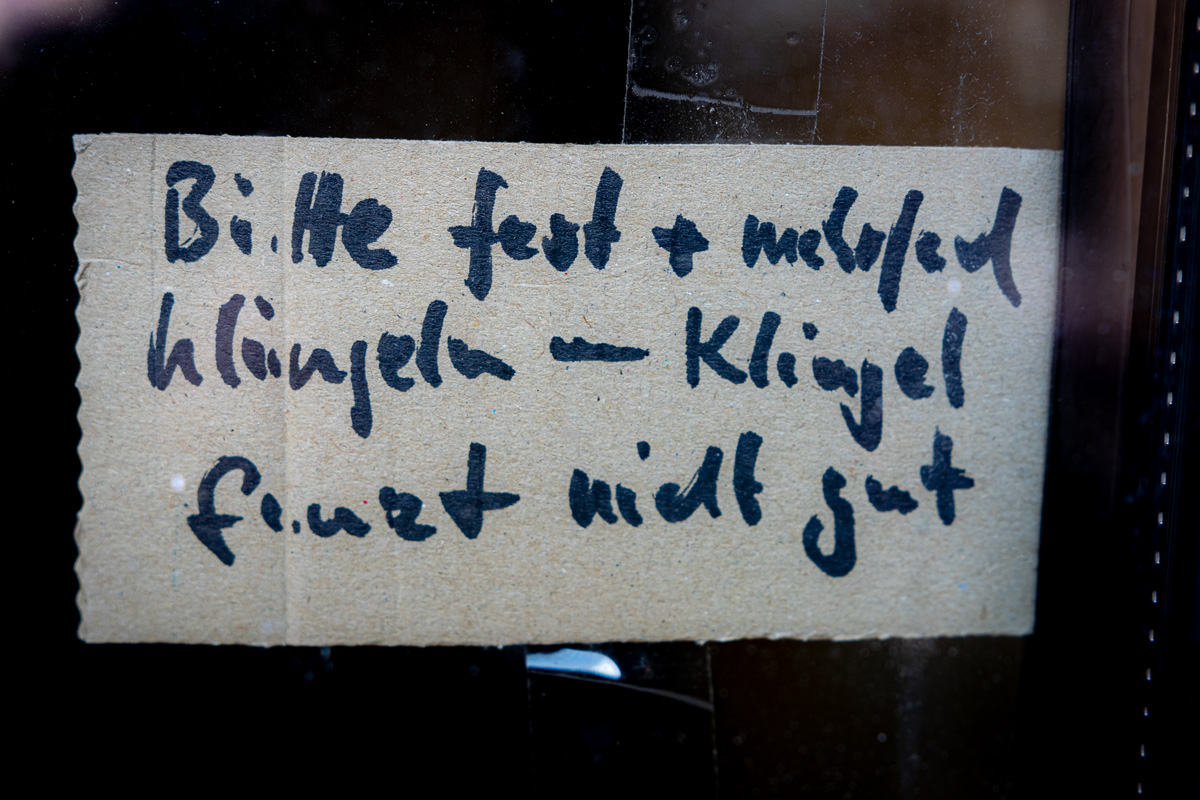 Bitte fest + mehrfach
klingeln – Klingel
funzt nicht gut